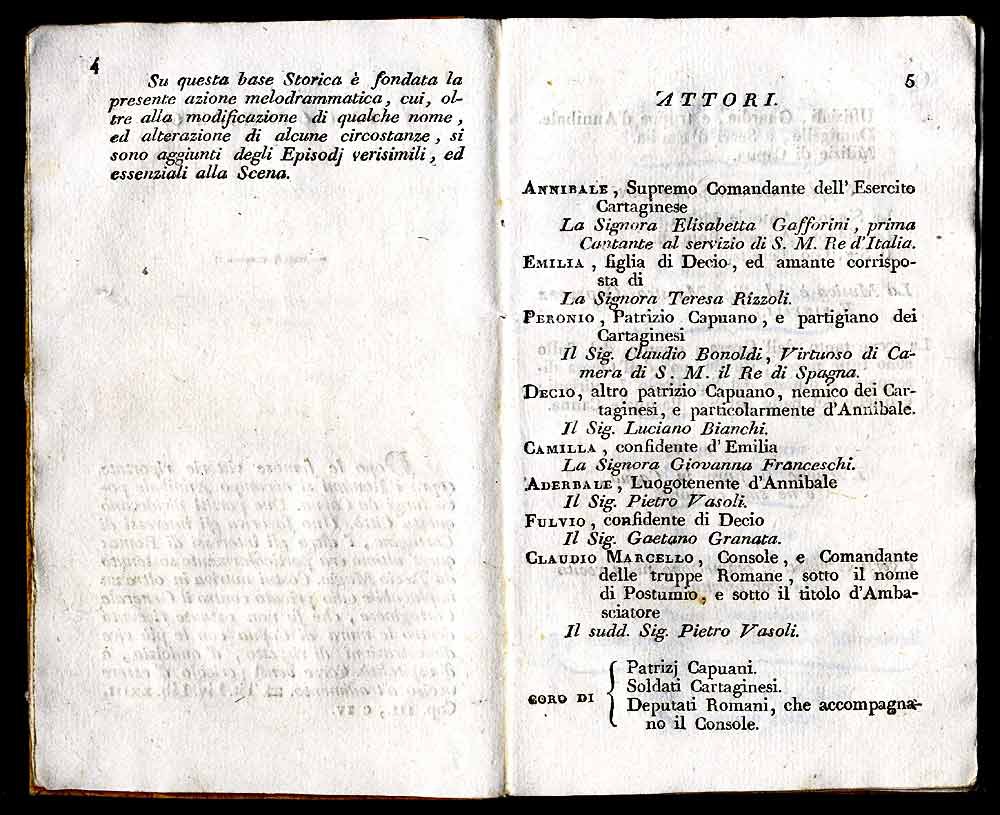 4
Su questa base Storica è fondata la
presente azione melodrammatica, cui, ol-
tre alla modificazione di qualche nome,
ed alterazione di alcune circostanze, si
sono aggiunti degli Episodj verisimili, ed
essenziali alla Scena.
5
ATTORI.
ANNIBALE, Supremo Comandante dell' Esercito
Cartaginese
La Signora Elisabetta Gafforini, prima
Cantante al servizio di S. M. Re d'Italia.
EMILIA, figlia di Decio, ed amante corrispo-
sta di
La Signora Teresa Rizzoli.
PERONIO, Patrizio Capuano, e partigiano dei
Cartaginesi
Il Sig. Claudio Bonoldi, Virtuoso di Ca-
mera di S. M. il Re di Spagna.
DECIO, altro patrizio Capuano, nemico dei Car-
taginesi, e particolarmente d'Annibale.
Il Sig. Luciano Bianchi.
CAMILLA, confidente d' Emilia
La Signora Giovanna Franceschi.
ADERBALE, Luogotenente d'Annibale
Il Sig. Pietro Vasoli.
FULVIO, confidente di Decio
Il Sig. Gaetano Granata.
CLAUDIO MARCELLO, Console, e Comandante
delle truppe Romane, sotto il nome
di Postumio, e sotto il titolo d'Amba-
sciatore
Il sudd. Sig. Pietro Vasoli.
CORO DI { Patrizj Capuani.
Soldati Cartaginesi.
Deputati Romani, che accompagna-
no il Console.